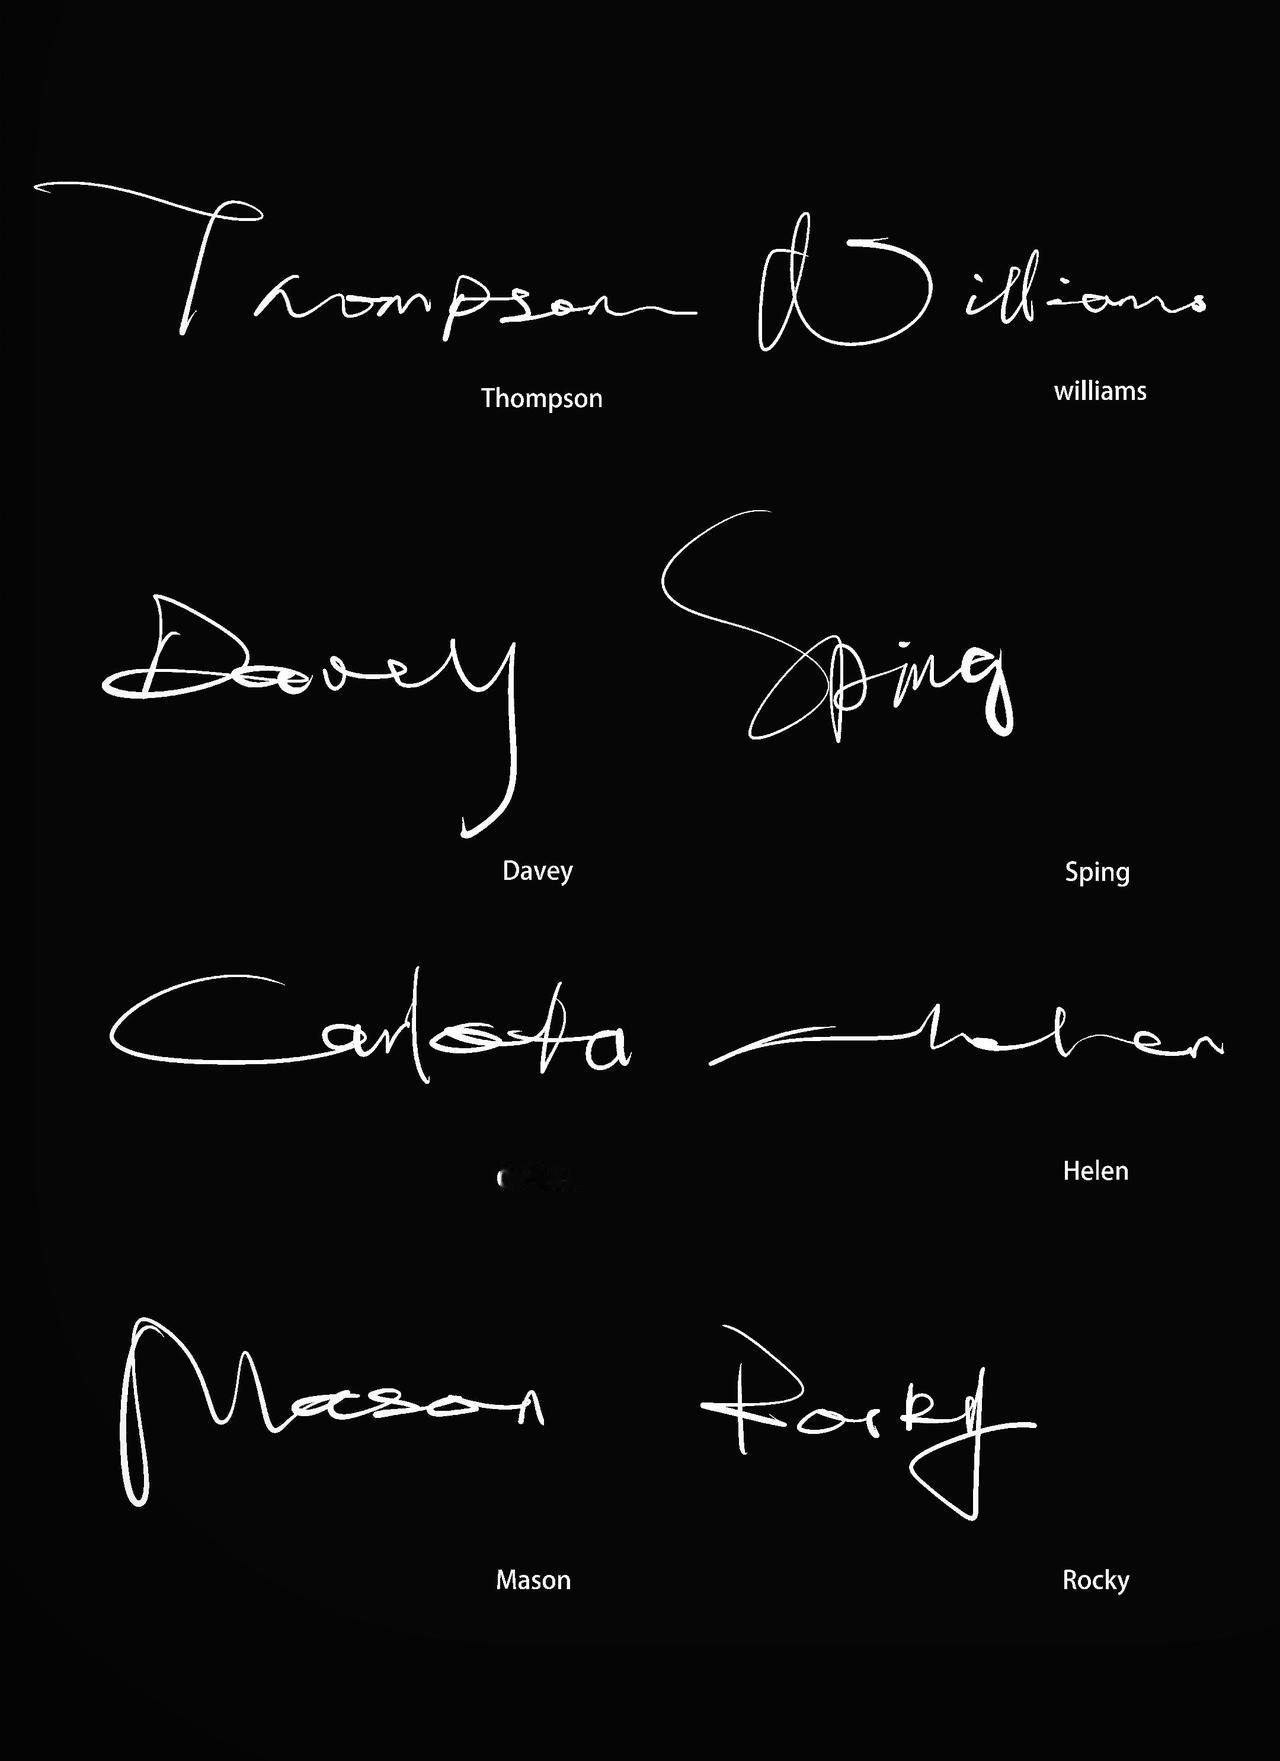 Thompson Williams
Thompson williams
Davey Sping
Davey Sping
Carlosta Helen
Helen
Mason Rocky
Mason Rocky